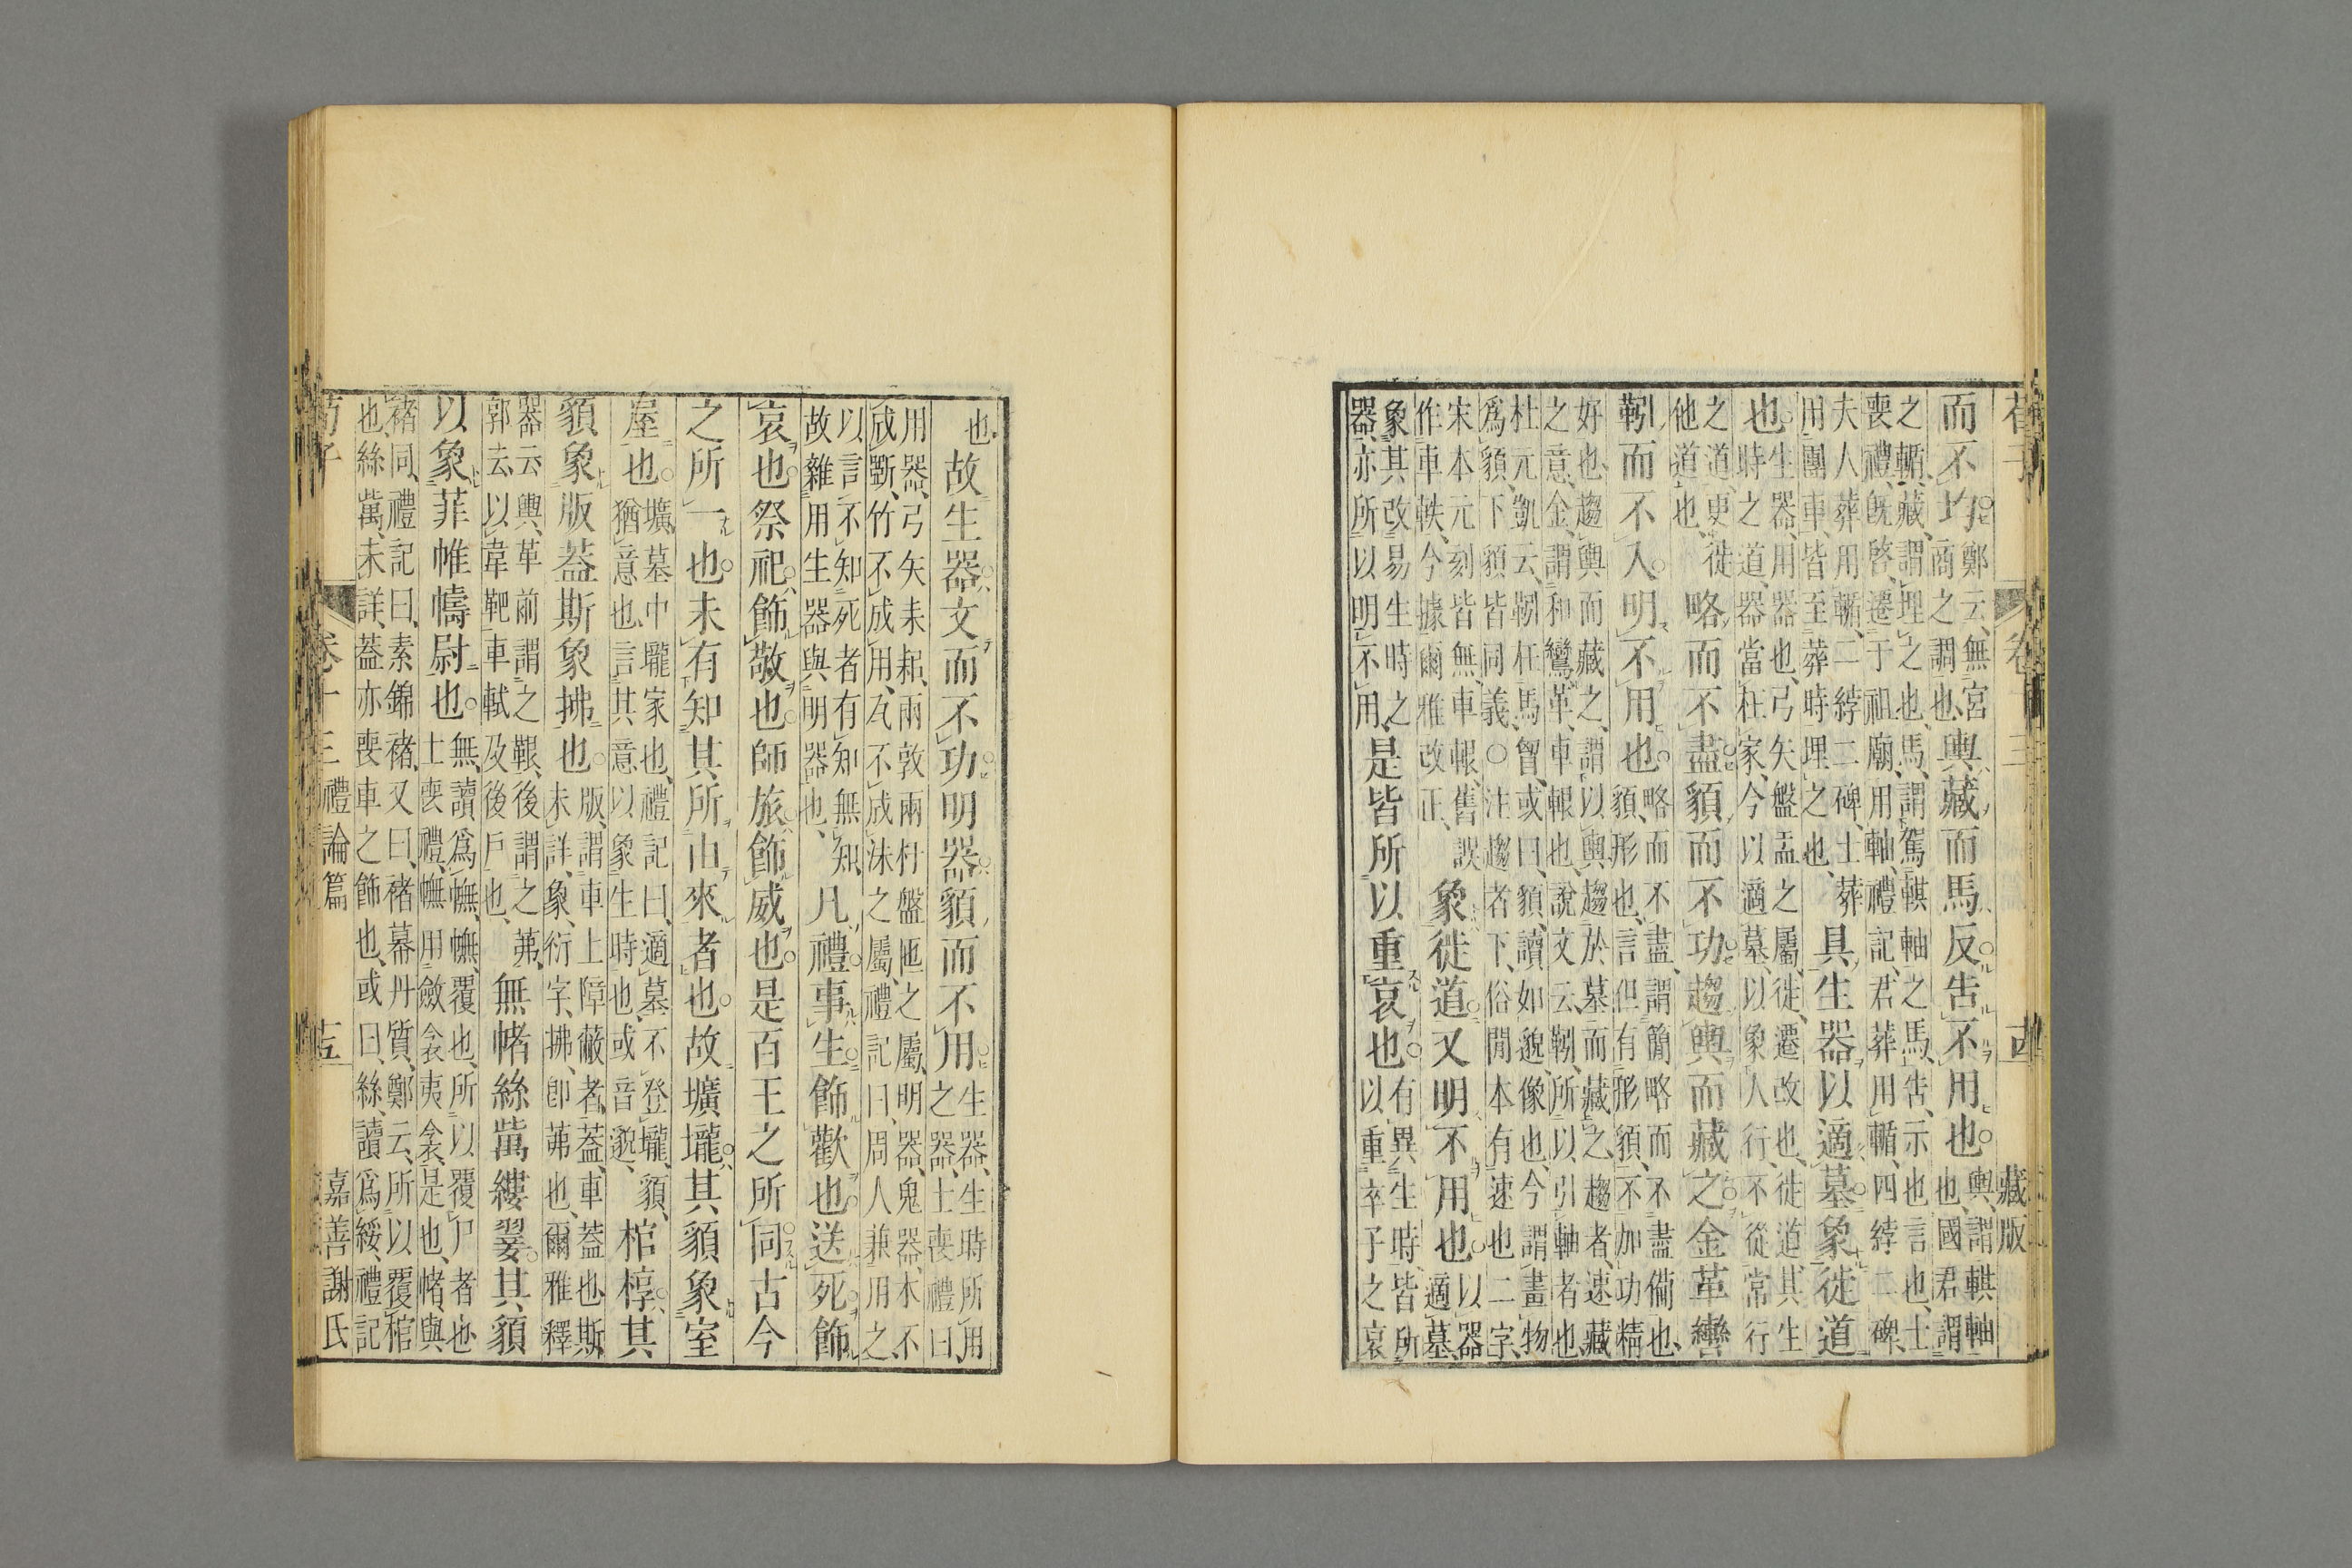 荀子 卷十三 十四 藏版
而不均鄭云無宮
商之調也輿藏而馬反吿不用也輿謂輁軸
也國君謂
之輴藏謂埋之也馬謂駕輁軸之馬吿示也言也士
喪禮旣啓遷于祖廟用軸禮記君葬用輴四綍二碑
夫人葬用輴二綍二碑士葬
用團車皆至葬時埋之也具生器以適墓象徙道
也生器用器也弓矢盤盂之屬徙遷改也徙道其生
時之道器當在家今以適墓以象人行不從常行
之道更徙
他道也略而不盡䫉而不功趨輿而藏之金革轡
靷而不入明不用也略而不盡謂簡略而不盡備也
䫉形也言但有形䫉不加功精
好也趨輿而藏之謂以輿趨於墓而藏之趨者速藏
之意金謂和鸞革車鞎也說文云靷所以引軸者也
杜元凱云靷在馬曾或曰䫉讀如邈像也今謂畫物
爲䫉下䫉皆同義〇注趨者下俗閒本有速也二字
宋本元刻皆無車鞎舊誤
作車軼今據爾雅改正象徙道又明不用也以器
適墓
象其改易生時之
器亦所以明不用是皆所以重哀也有異生時皆所
以重卒子之哀
也故生器文而不功明器䫉而不用生器生時所用
之器士喪禮曰
用器弓矢耒耜兩敦兩杅盤匜之屬明器鬼器木不
成斲竹不成用瓦不成沬之屬禮記曰周人兼用之
以言不知死者有知無知
故雜用生器與明器也凡禮事生飾歡也送死飾
哀也祭祀飾敬也師旅飾威也是百王之所同古今
之所一也未有知其所由來者也故壙壠其䫉象室
屋也壙墓中壠冢也禮記曰適墓不登壠䫉
猶意也言其意以象生時也或音邈棺椁其
䫉象版蓋斯象拂也版謂車上障蔽者蓋車蓋也斯
未詳象衍字拂卽茀也爾雅釋
器云輿革前謂之鞎後謂之茀
郭云以韋靶車軾及後戶也無帾絲歶縷翣其䫉
以象菲帷幬尉也無讀爲幠幠覆也所以覆尸者也
士喪禮幠用斂衾夷衾是也帾與
褚同禮記曰素錦褚又曰褚幕丹質鄭云所以覆棺
也絲歶未詳蓋亦喪車之飾也或曰絲讀爲綏禮記
荀子 卷十三 禮論篇 十五 嘉善謝氏